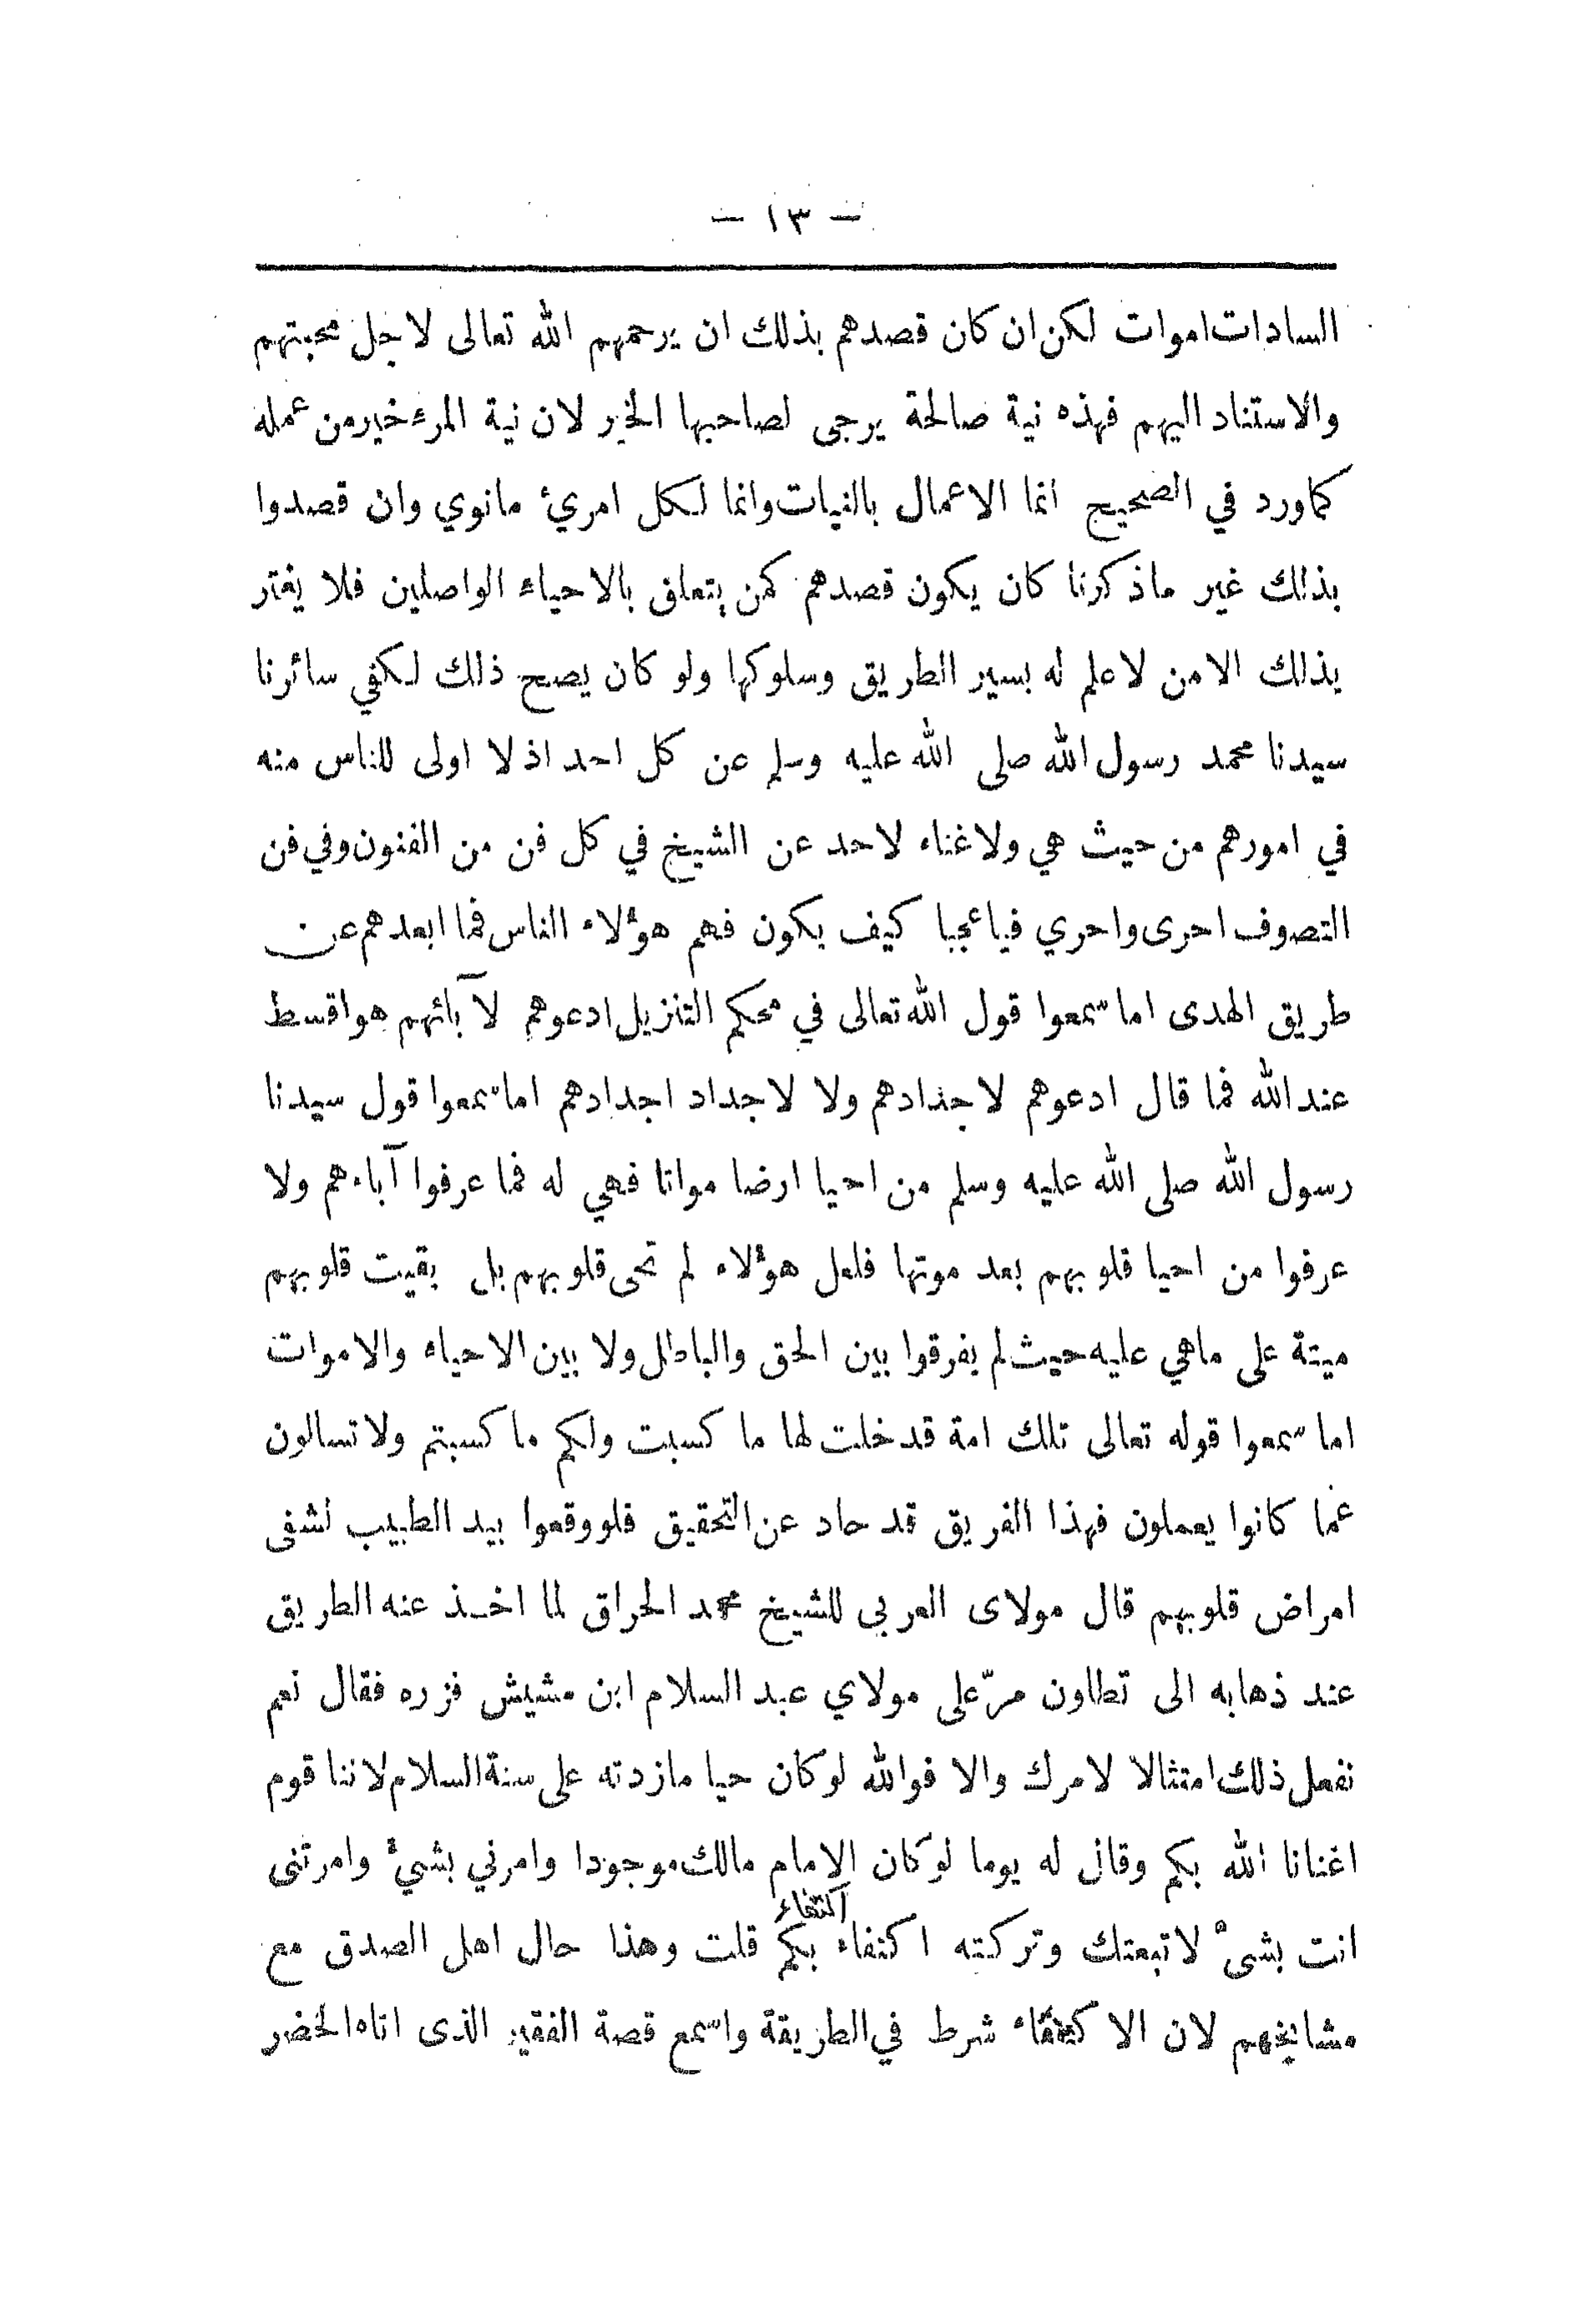 — ١٣ —
السادات اموات لكن ان كان قصدهم بذلك ان يرحمهم الله تعالى لاجل محبتهم
والاستناد اليهم فهذه نية صالحة يرجى لصاحبها الخير لان نية المرء خير من عمله
كماورد في الصحيح انما الاعمال بالنيات وانما لكل امريء مانوي وان قصدوا
بذلك غير ماذكرنا كان يكون قصدهم كمن يتعلق بالاحياء الواصلين فلا يغتر
بذلك الامن لاعلم له بسير الطريق وسلوكها ولو كان يصح ذلك لكفي سائرنا
سيدنا محمد رسول الله صلى الله عليه وسلم عن كل احد اذ لا اولى للناس منه
في امورهم من حيث هي ولاغناء لاحد عن الشيخ في كل فن من الفنون وفي فن
التصوف احرى واحري فياعجبا كيف يكون فهم هؤلاء الناس فما ابعدهم عن
طريق الهدى اما سمعوا قول الله تعالى في محكم التنزيل ادعوهم لآبائهم هو اقسط
عند الله فما قال ادعوهم لاجدادهم ولا لاجداد اجدادهم اما سمعوا قول سيدنا
رسول الله صلى الله عليه وسلم من احيا ارضا مواتا فهي له فما عرفوا آباءهم ولا
عرفوا من احيا قلوبهم بعد موتها فلعل هؤلاء لم تحى قلوبهم بل بقيت قلوبهم
ميتة على ماهي عليه حيث لم يفرقوا بين الحق والباطل ولا بين الاحياء والاموات
اما سمعوا قوله تعالى تلك امة قد خلت لها ما كسبت ولكم ما كسبتم ولا تسالون
عما كانوا يعملون فهذا الفريق قد حاد عن التحقيق فلو وقعوا بيد الطبيب لشفى
امراض قلوبهم قال مولاى العربى للشيخ محمد الحراق لما اخذ عنه الطريق
عند ذهابه الى تطاون مرّ على مولاي عبد السلام ابن مشيش فزره فقال نعم
نفعل ذلك امتثالا لامرك والا فوالله لو كان حيا مازدته على سنة السلام لاننا قوم
اغنانا الله بكم وقال له يوما لو كان الامام مالك موجودا وامرني بشيء وامرتنى
اكتفاء
انت بشىء لاتبعتك وتركته اكتفاء بكم قلت وهذا حال اهل الصدق مع
مشايخهم لان الاكتفاء شرط في الطريقة واسمع قصة الفقير الذى اتاه الخضر